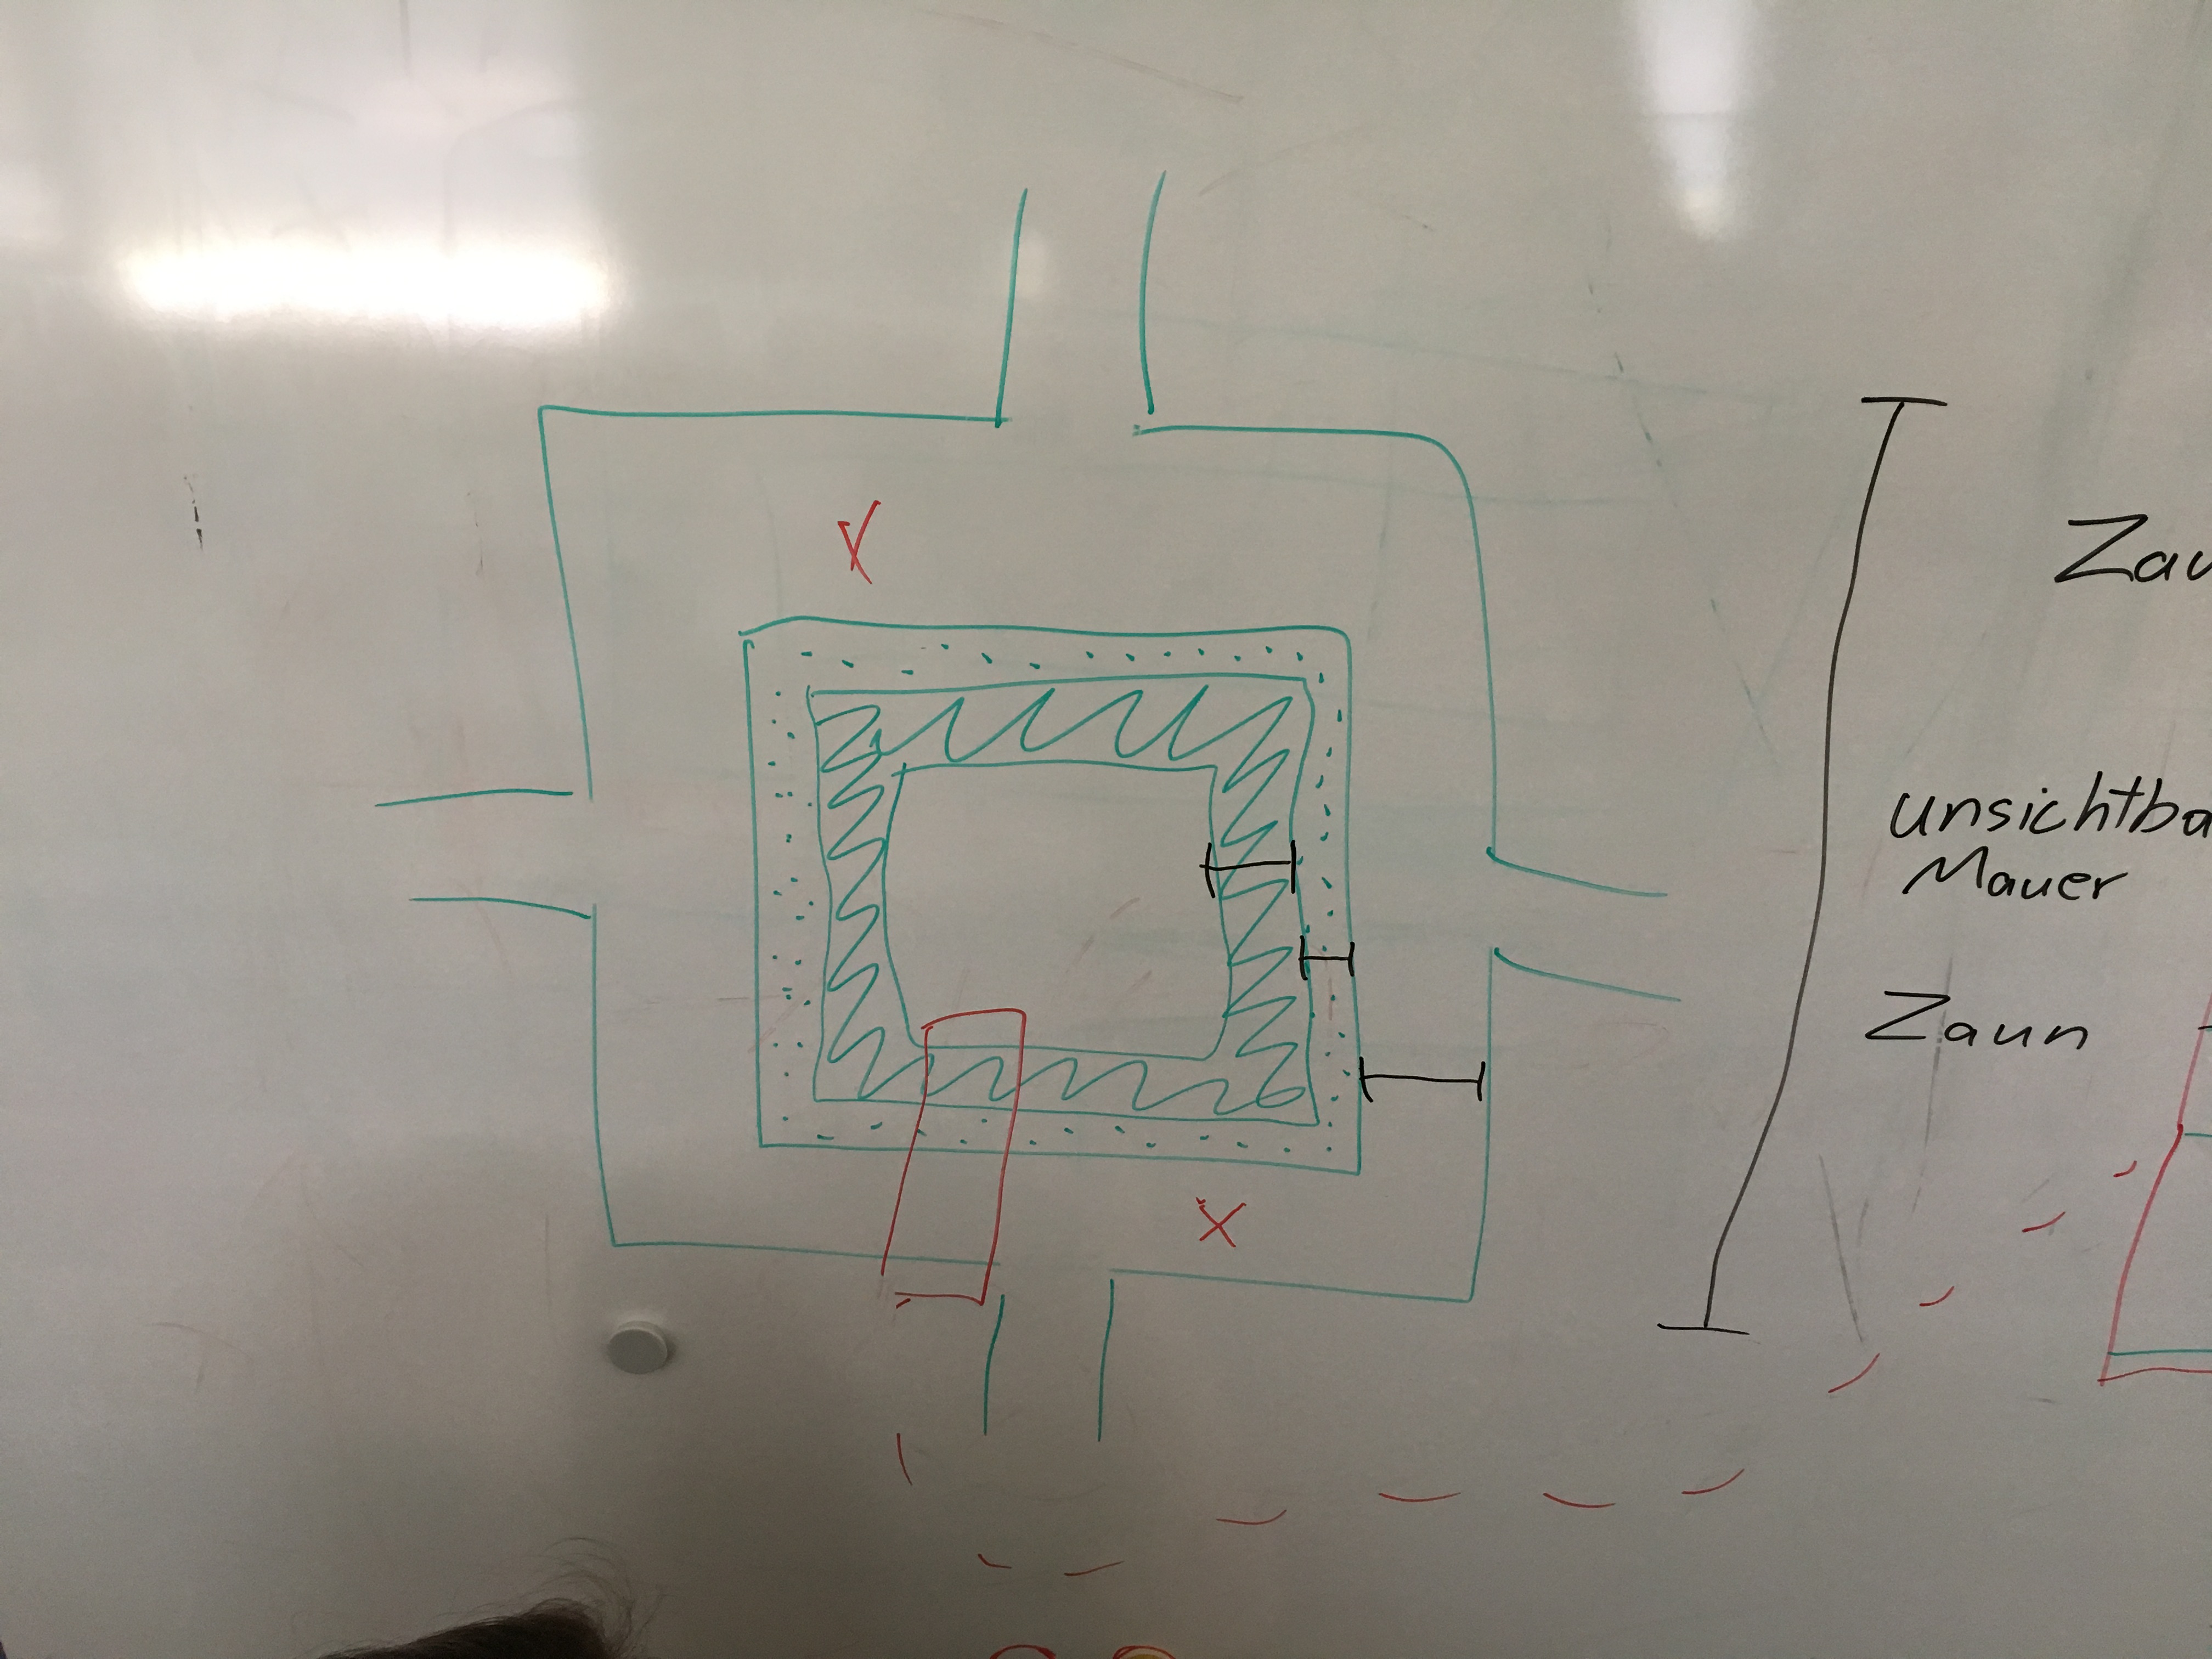 Zau
unsichtba
Mauer
Zaun
x
x